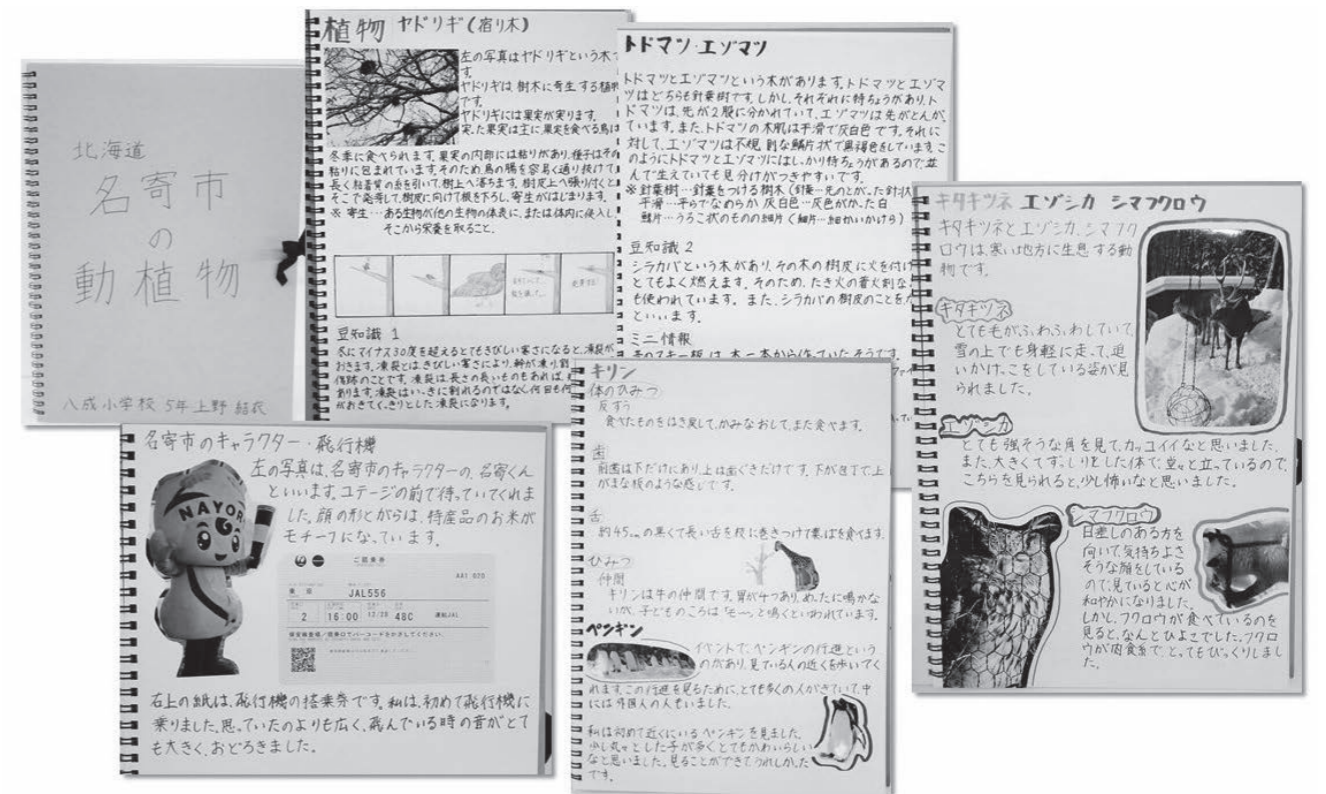 北海道
名寄市
の
動植物
八成小学校 5年 上野 結衣
植物 ヤドリギ(宿り木)
左の写真はヤドリギという木で
す。
ヤドリギは、樹木に寄生する植物
です。
ヤドリギには果実が実ります。
実った果実は主に、果実を食べる鳥は
冬季に食べられます。果実の内部には粘りがあり、種子はその
粘りに包まれています。そのため、鳥の腸を容易く通り抜けて
長く粘着質の糸を引いて、樹上へ落ちます。樹皮上へ張り付くと
そこで発芽して、樹皮に向けて根を下ろし、寄生がはじまります。
※ 寄生…ある生物が他の生物の体表に、または体内に侵入し、
そこから栄養を取ること。
豆知識 1
冬にマイナス30度を超えるとてもきびしい寒さになると、凍裂が
おきます。凍裂とは、きびしい寒さにより、幹が凍り、
傷跡のことです。凍裂は、長さの長いものもあれば、
あります。凍裂は、いっきに割れるのではなく、何日も何
がおきて、くっきりとした凍裂になります。
トドマツ・エゾマツ
トドマツとエゾマツという木があります。トドマツとエゾマ
ツはどちらも針葉樹です。しかし、それぞれに特ちょうがあり、ト
ドマツは、先が2股に分かれていて、エゾマツは先がとんが
ています。また、トドマツの木肌は平滑で灰白色です。それに
対して、エゾマツは不規則な鱗片状で黒褐色をしています。こ
のようにトドマツとエゾマツにはしっかり特ちょうがあるので、並
んで生えていても見分けがつきやすいです。
※針葉樹…針葉をつける樹木(針葉…先のとがった針状
平滑…平らでなめらか 灰白色…灰色がかった白
鱗片…うろこ状のものの細片(細片…細かいかけら)
豆知識 2
シラカバという木があり、その木の樹皮に火を付け
とてもよく燃えます。そのため、たき火の着火剤な
も使われています。また、シラカバの樹皮のことを
といいます。
ミニ情報
そのスキー板は、木一本から作っていたそうです。
キタキツネ エゾシカ シマフクロウ
キタキツネとエゾシカ、シマフク
ロウは、寒い地方に生息する動
物です。
キタキツネ
とても毛がふわふわしていて、
雪の上でも身軽に走って、追
いかけっこをしている姿が見
られました。
エゾシカ
とても強そうな角を見て、カッコイイなと思いました。
また、大きくてずっしりとした体で、堂々と立っているので、
こちらを見られると、少し怖いなと思いました。
シマフクロウ
日差しのある方を
向いて、気持ちよさ
そうな顔をしている
ので、見ていると心が
和やかになりました。
しかし、フクロウが食べているのを
見ると、なんとひよこでした。フクロ
ウが肉食系で、とってもびっくりしまし
た。
名寄市のキャラクター・飛行機
左の写真は、名寄市のキャラクターの、名寄くん
といいます。コテージの前で待っていてくれま
した。顔の形とがらは、特産品のお米が
モチーフになっています。
NAYOR
ご搭乗券
JAL556
2 16:00 12/28 48C 運航JAL
保安検査場/搭乗口でバーコードをかざしてください。
右上の紙は、飛行機の搭乗券です。私は、初めて飛行機に
乗りました。思っていたのよりも広く、飛んでいる時の音がとて
も大きく、おどろきました。
キリン
体のひみつ
反すう
食べたものをはき戻して、かみなおして、また食べます。
歯
前歯は下だけにあり、上は歯ぐきだけです。下が包丁で、上
がまな板のような感じです。
舌
約45cmの黒くて長い舌を枝に巻きつけて葉っぱを食べます。
ひみつ
仲間
キリンは牛の仲間です。胃が4つあり、めったに鳴かな
いが、子どものころは「モ〜っ」と鳴くといわれています。
ペンギン
イベントで、ペンギンの行進という
のがあり、見ている人の近くを歩いてく
れます。この行進を見るために、とても多くの人がきていて、中
には外国人の人もいました。
私は初めて近くにいるペンギンを見ました。
少し丸々とした子が多く、とてもかわいらしい
なと思いました。見ることができてうれしかった
です。